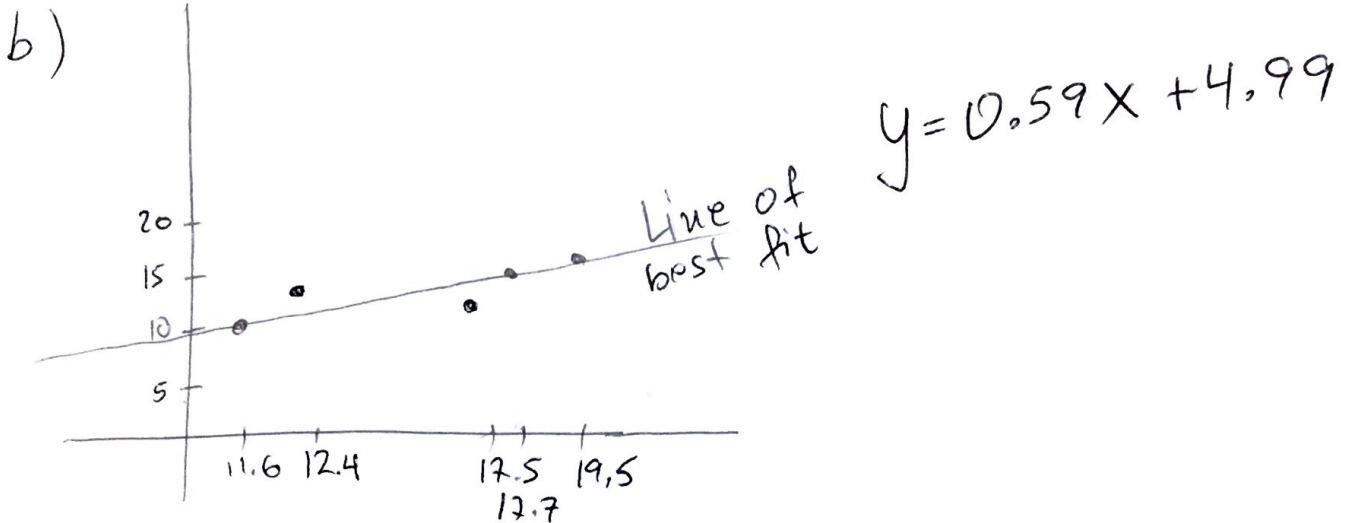 b)
y = 0.59x + 4.99
Line of
best fit
20
15
10
5
11.6 12.4 17.5 19,5
17.7